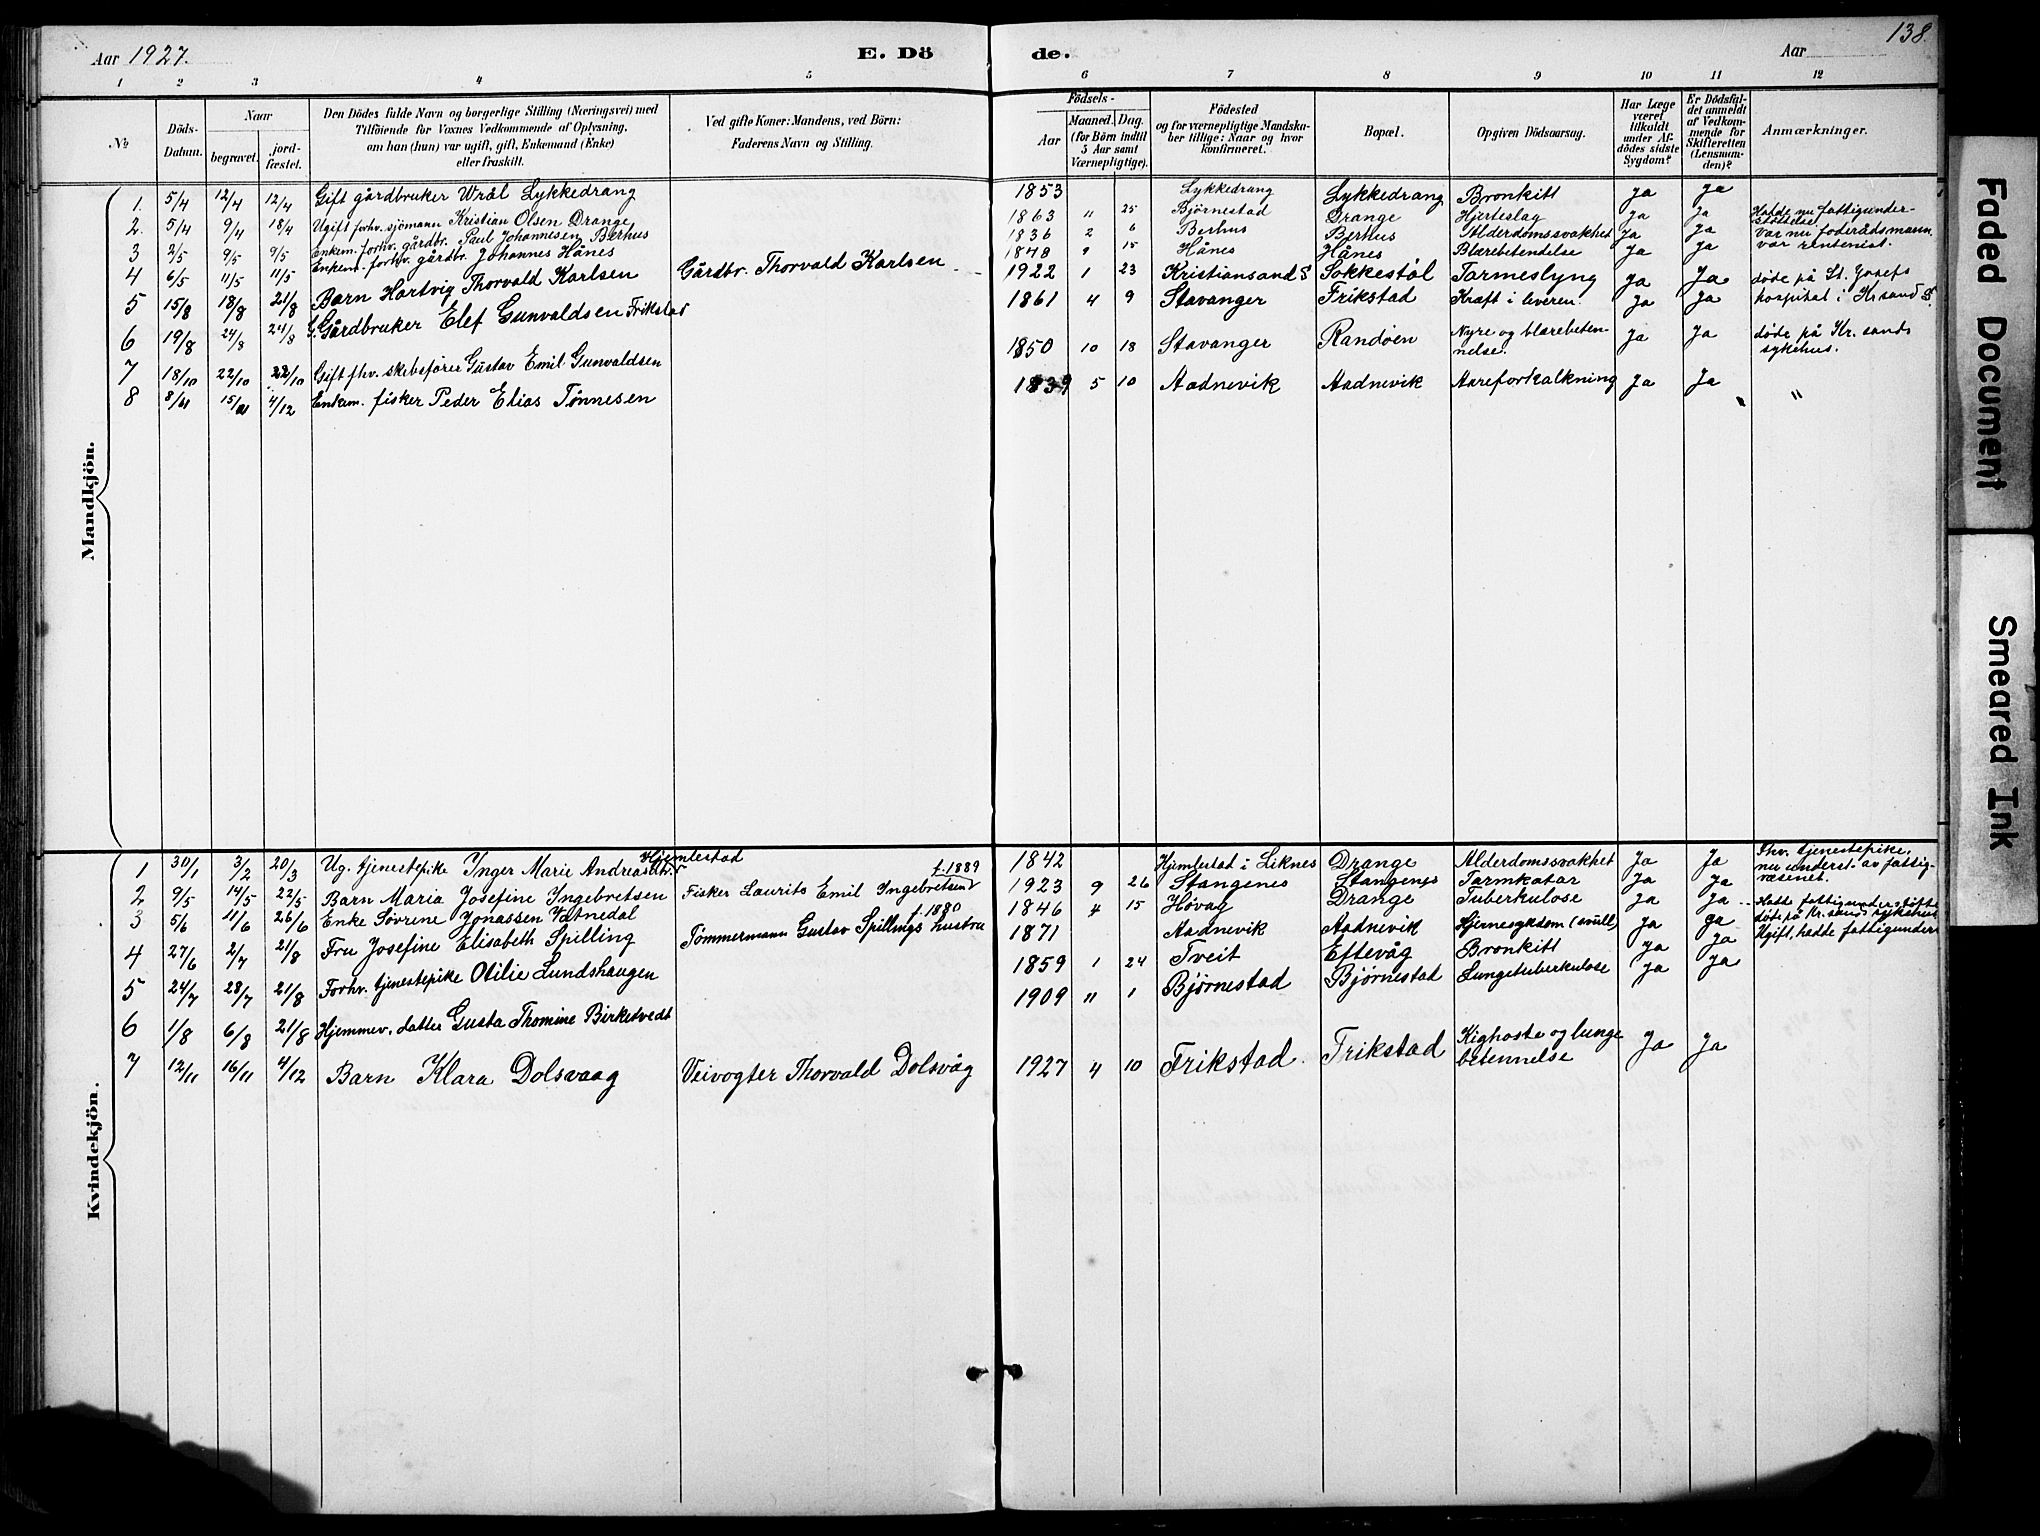 Aar 1927. E. Dö de. Aar 138.
1 2 3 4 5 6 7 8 9 10 11 12
№ Döds-Datum. Naar begravet. jordfæstet. Den Dödes fulde Navn og borgerlige Stilling (Næringsvei) med Tilföiende for Voxnes Vedkommende af Oplysning, om han (hun) var ugift, gift, Enkemand (Enke) eller fraskilt. Ved gifte Koner: Mandens, ved Börn: Faderens Navn og Stilling. Födsels- Aar Maaned. Dag. (for Börn indtil 5 Aar samt Værnepligtige). Födested og for værnepligtige Mandskaber tillige: Naar og hvor konfirmeret. Bopæl. Opgiven Dödsaarsag. Har Læge været tilkaldt under Afdödes sidste Sygdom? Er Dödsfaldet anmeldt af Vedkommende for Skifteretten (Lensmanden)? Anmærkninger.
Mandkjön.
1. 5/4 12/4 12/4 Gift gårdbruker Wrål Lykkedrang 1853 Lykkedrang Lykkedrang Bronkitt Ja Ja
2. 5/4 9/4 18/4 Ugift forhv. sjömann Kristian Olsen Drange 1863 11 25 Björnestad Drange Hjerteslag Ja Ja Hadde nu fattigunderstöttelse
3 2/5 9/5 9/5 Enkem. forhv. gårdbr. Paul Johannesen Berhus 1836 2 6 Berhus Berhus Alderdomssvakhet Ja Ja Var nu föderådsmann.
4 6/5 11/5 11/5 Enkem. forhv. gårdbr. Johannes Hånes 1848 9 15 Hånes Hånes Blærebetendelse Ja Ja var rentenist.
5 15/8 18/8 21/8 Barn Hartvig Thorvald Karlsen Gårdbr. Thorvald Karlsen 1922 1 23 Kristiansand S Sokkestøl Tarmeslyng Ja Ja døde på St. Josefs hospital i Kr.sand S.
6 19/8 24/8 24/8 G. Gårdbruker Elef Gunvaldsen Frikstad 1861 4 9 Stavanger Frikstad Kræft i leveren. Ja Ja
7 18/10 22/10 22/10 Gift fhv. skibsfører Gustav Emil Gunvaldsen 1850 10 18 Stavanger Randøen Nyre og blærebetennelse. Ja Ja døde på Kr.sands sykehus.
8 8/11 15/11 4/12 Enkem. fisker Peder Elias Tønnesen 1839 5 10 Aadnevik Aadnevik Aareforkalkning Ja Ja "
Kvindekjön.
1 30/1 3/2 20/3 Ug. tjenestepike Inger Marie Andreasdtr. Hjemlestad 1842 Hjemlestad i Liknes Drange Alderdomssvakhet Ja Ja Fhv. tjenestepike. nu underst. av fattigvæsenet.
2 9/5 14/5 22/5 Barn Maria Josefine Ingebretsen Fisker Laurits Emil Ingebretsen f. 1889 1923 9 26 Stangenes Stangenes Tarmkatar Ja Ja
3 5/6 11/6 26/6 Enke Sövrene Jonassen Vatnedal 1846 4 15 Høvag Drange Tuberkulose Ja Ja Hadde fattigunderstötte
4 27/6 2/7 21/8 Fru Josefine Elisabeth Spilling Tømmermann Gustav Spillings hustru f. 1880 1871 Aadnevik Aadnevik Hjernesykdom Ja Ja døde på Kr.sands sykehus
5 24/7 28/7 21/8 Forhv. tjenestepike Otilie Lundshaugen 1859 1 24 Tveit Eftevåg Bronkitt Ja Ja Ugift, hadde fattigunder
6 1/8 6/8 21/8 Hjemmev. datter Gusta Thomine Birketvedt 1909 11 1 Bjørnestad Bjørnestad Lungetuberkulose Ja Ja
7 12/11 16/11 4/12 Barn Klara Dolsvaag Veivogter Thorvald Dolsvåg 1927 4 10 Frikstad Frikstad Kighoste og lungebetennelse Ja Ja
Faded Document
Smeared Ink